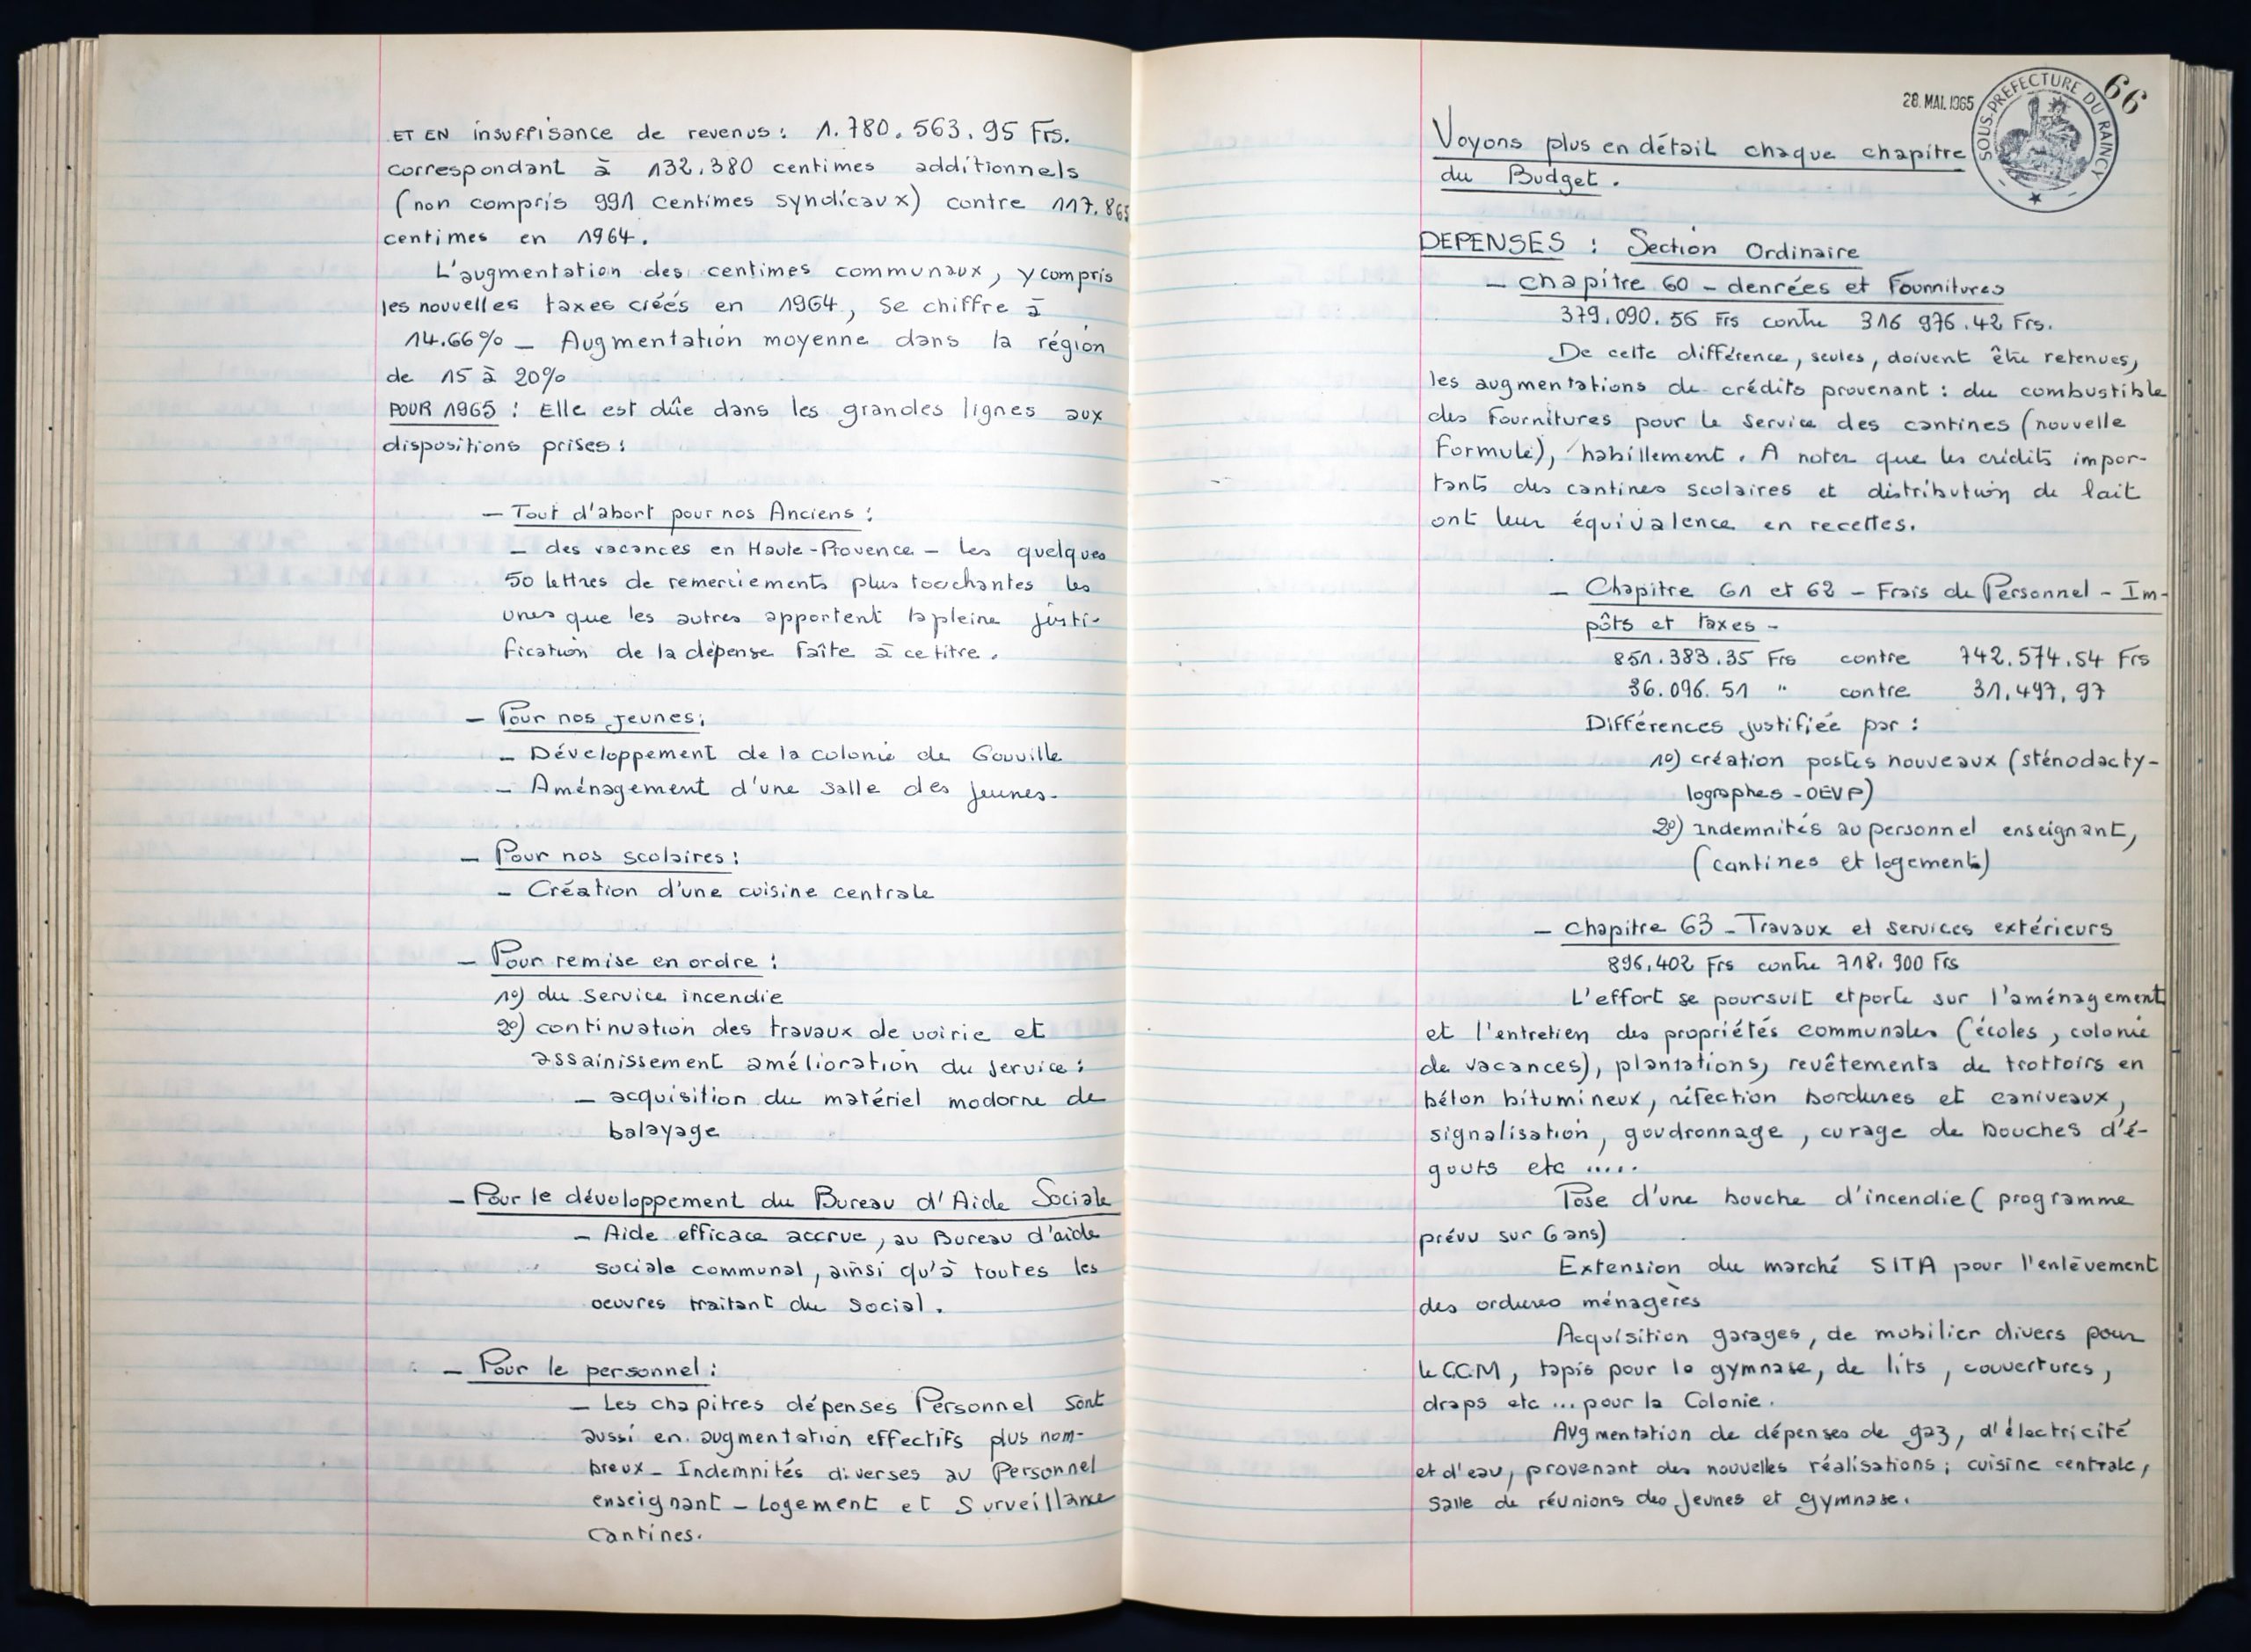 ET EN insuffisance de revenus : 1.780.563.95 Frs.
correspondant à 132.380 centimes additionnels
(non compris 991 centimes syndicaux) contre 117.865
centimes en 1964.
L'augmentation des centimes communaux, y compris
les nouvelles taxes créés en 1964, se chiffre à
14.66% _ Augmentation moyenne dans la région
de 15 à 20%
POUR 1965 : Elle est dûe dans les grandes lignes aux
dispositions prises :
- Tout d'abort pour nos Anciens :
- des vacances en Haute-Provence - les quelques
50 lettres de remerciements plus touchantes les
unes que les autres apportent la pleine justi-
fication de la dépense faîte à ce titre.
- Pour nos jeunes :
- Développement de la colonie de Gouville
- Aménagement d'une salle des jeunes.
- Pour nos scolaires :
- Création d'une cuisine centrale
- Pour remise en ordre :
1º) du service incendie
2º) continuation des travaux de voirie et
assainissement amélioration du service :
- acquisition du matériel modorne de
balayage
- Pour le dévoloppement du Bureau d'Aide Sociale
- Aide efficace accrue, au Bureau d'aide
sociale communal, ainsi qu'à toutes les
oeuvres traitant du social.
- Pour le personnel :
- Les chapitres dépenses Personnel sont
aussi en augmentation effectifs plus nom-
breux _ Indemnités diverses au Personnel
enseignant - Logement et Surveillance
Cantines.
28. MAI. 1965
SOUS-PREFECTURE DU RAINCY
66
Voyons plus en détail chaque chapitre
du Budget.
DEPENSES : Section Ordinaire
- chapitre 60 - denrées et Fournitures
379.090.56 Frs contre 316 976.42 Frs.
De cette différence, seules, doivent être retenues,
les augmentations de crédits provenant : du combustible
des Fournitures pour le service des cantines (nouvelle
Formule), habillement. A noter que les crédits impor-
tants des cantines scolaires et distribution de lait
ont leur équivalence en recettes.
- Chapitre 61 et 62 - Frais de Personnel - Im-
pôts et taxes -
851.383.35 Frs contre 742.574.54 Frs
36.096.51 " contre 31.497,97
Différences justifiée par :
1º) création postes nouveaux (sténodacty-
lographes - OEVP)
2º) indemnités au personnel enseignant,
(cantines et logements)
- Chapitre 63 - Travaux et services extérieurs
896.402 Frs contre 718.900 Frs
L'effort se poursuit et porte sur l'aménagement
et l'entretien des propriétés communales (écoles, colonie
de vacances), plantations, revêtements de trottoirs en
béton bitumineux, réfection bordures et caniveaux,
signalisation, goudronnage, curage de bouches d'é-
gouts etc .....
Pose d'une bouche d'incendie (programme
prévu sur 6 ans)
Extension du marché SITA pour l'enlèvement
des ordures ménagères
Acquisition garages, de mobilier divers pour
le CCM, tapis pour le gymnase, de lits, couvertures,
draps etc ... pour la Colonie.
Augmentation de dépenses de gaz, d'électricité
et d'eau, provenant des nouvelles réalisations ; cuisine centrale,
salle de réunions des jeunes et gymnase.